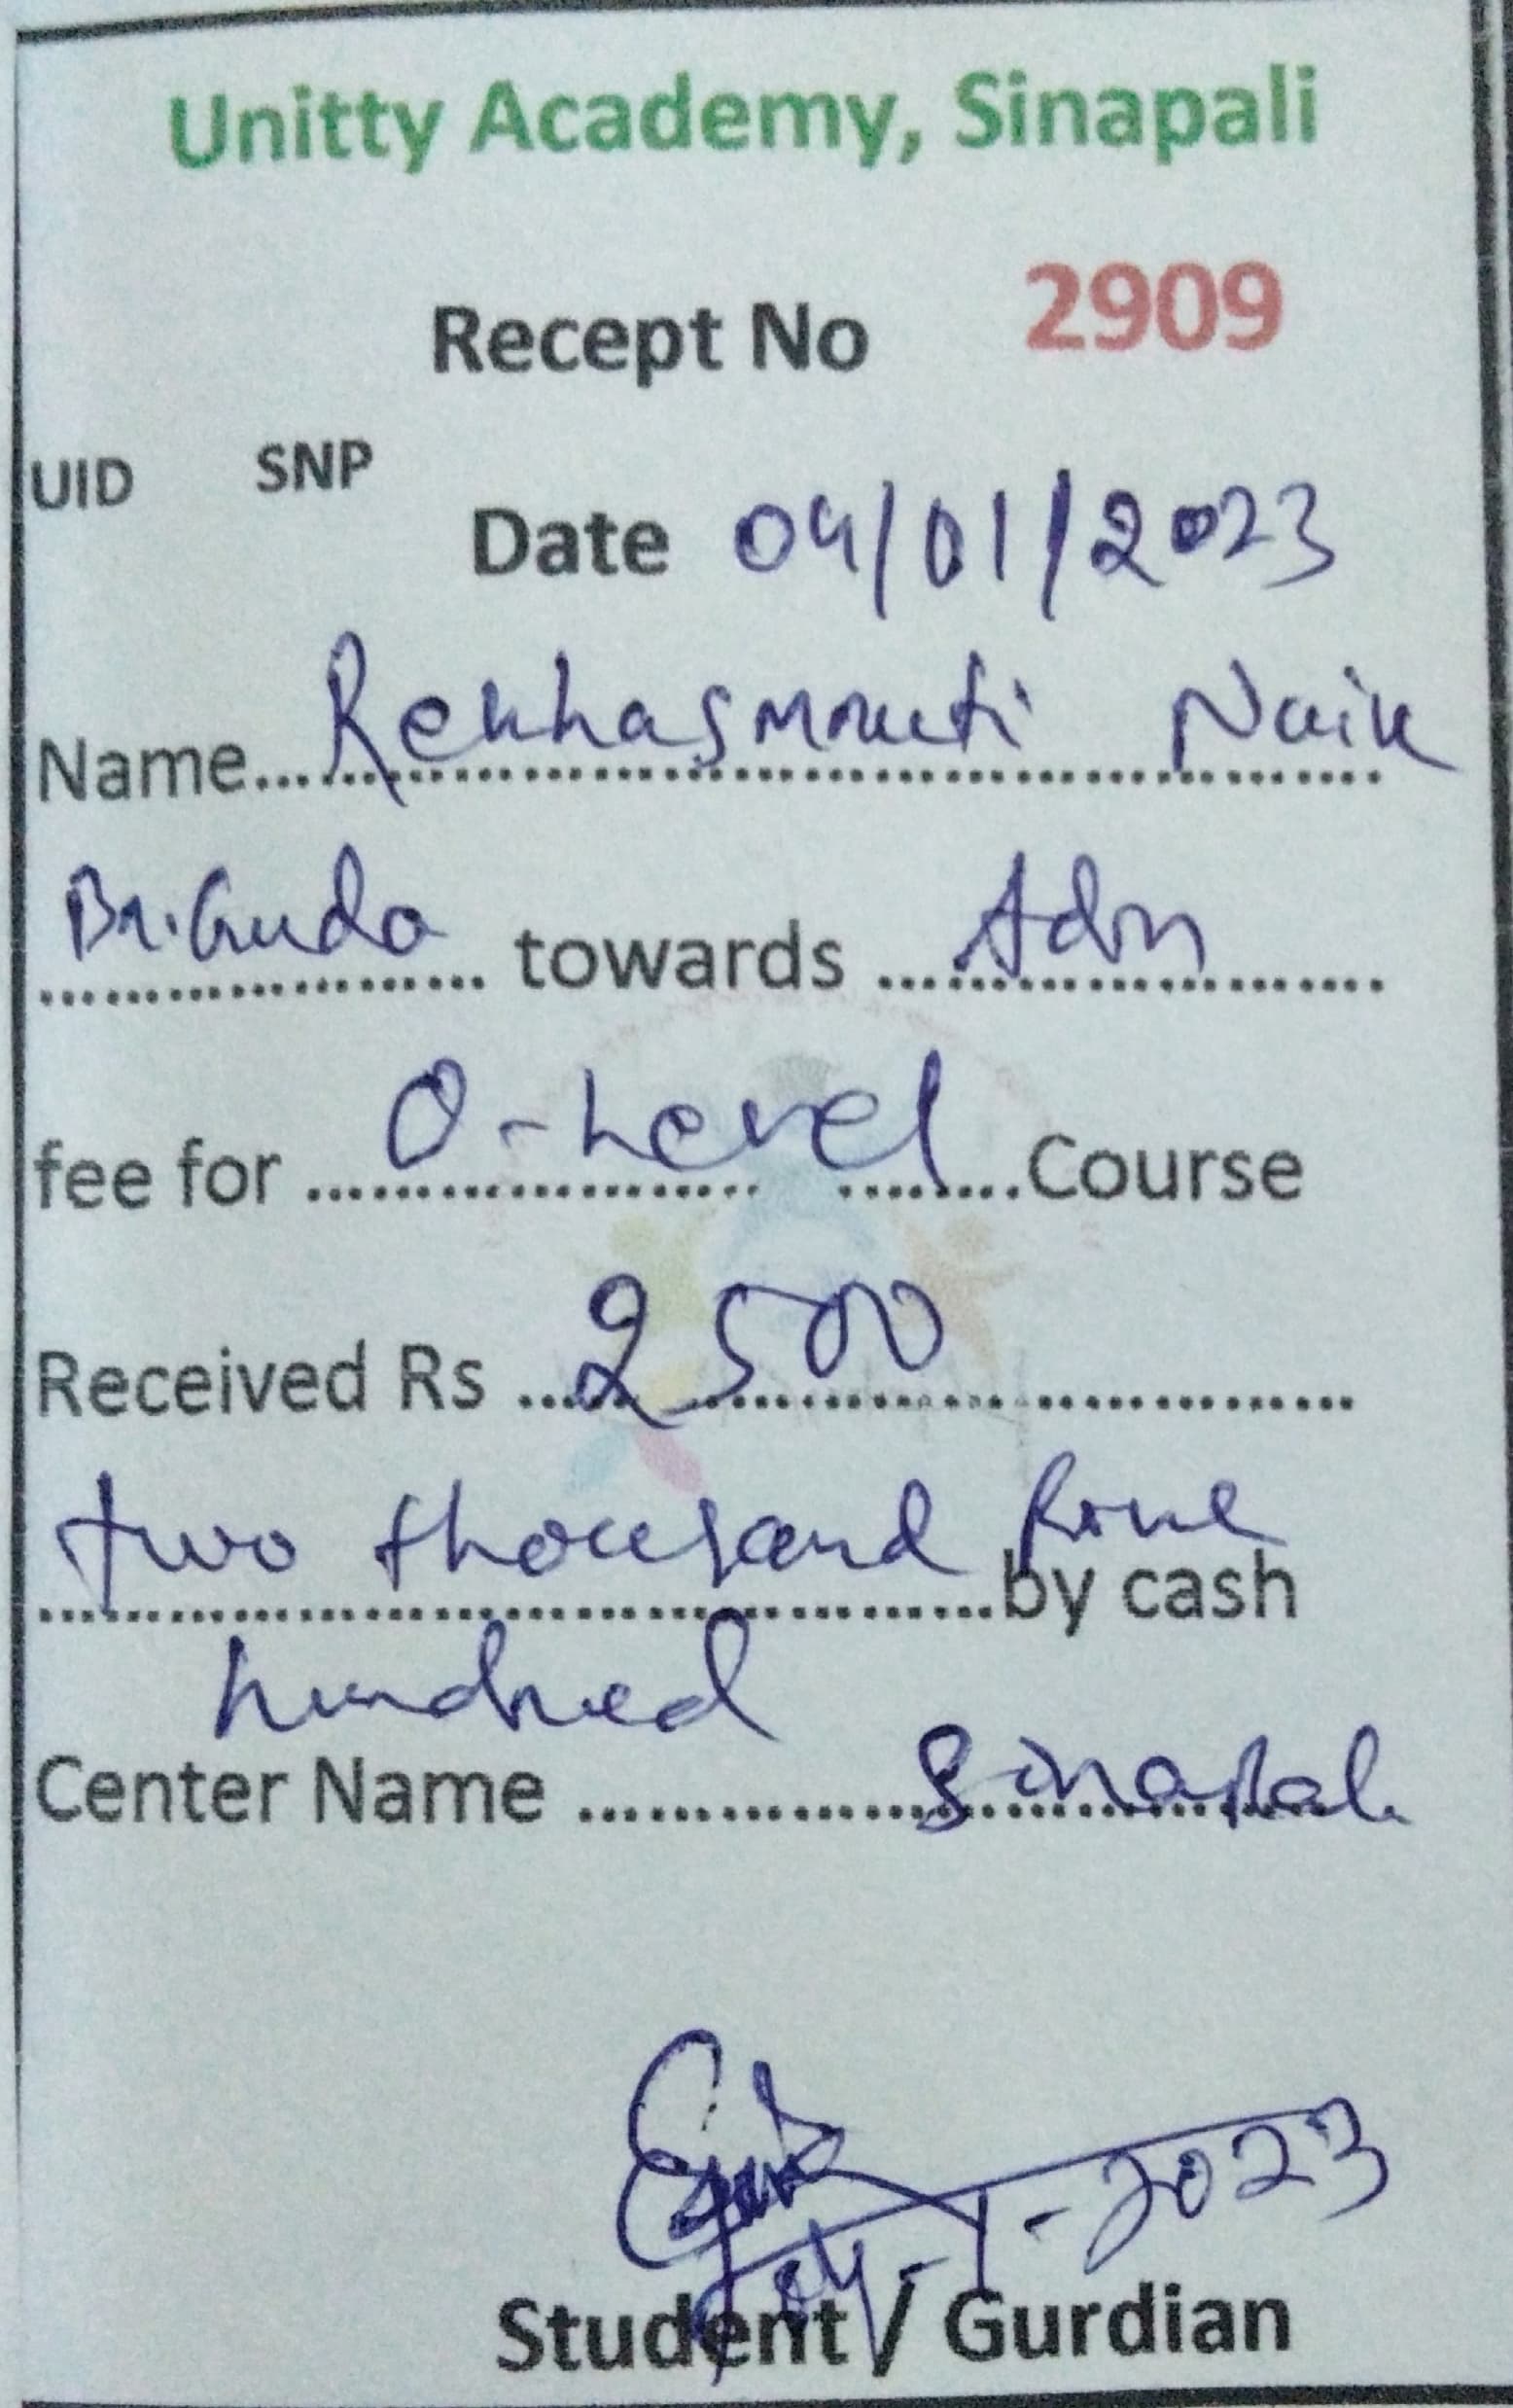 Unitty Academy, Sinapali
Recept No 2909
UID SNP
Date 04/01/2023
Name... Naik
Br.Guda towards Adm
fee for O-Level Course
Received Rs 2500
two thousand five by cash
hundred
Center Name Sinapali
04-1-2023
Student / Gurdian